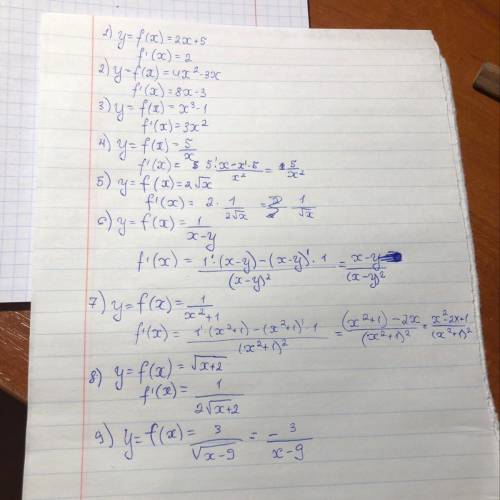 1) y=f(x)=2x+5
f'(x)=2
2) y=f(x)=4x²-3x
f'(x)=8x-3
3) y=f(x)=x³-1
f'(x)=3x²
4) y=f(x)=5/x
f'(x)= (5'·x-x'·5)/x² = 5/x²
5) y=f(x)=2√x
f'(x)= 2·1/(2√x) = 1/√x
6) y=f(x)=1/(x-y)
f'(x)= (1'·(x-y)-(x-y)'·1)/(x-y)² = (x-y)/(x-y)²
7) y=f(x)=1/(x²+1)
f'(x)= (1'(x²+1)-(x²+1)'·1)/(x²+1)² = ((x²+1)-2x)/(x²+1)² = (x²-2x+1)/(x²+1)²
8) y=f(x)=√(x+2)
f'(x)= 1/(2√(x+2))
9) y=f(x)= 3/√(x-9) = -3/(x-9)